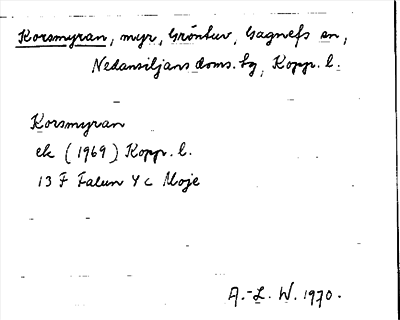 Korsmyran, myr, Gröntuv, Gagnefs sn,
Nedansiljans doms. bg, Kopp. l.
Korsmyran
ek (1969) Kopp. l.
13 F Falun 4 c Moje
A.-L. W. 1970.